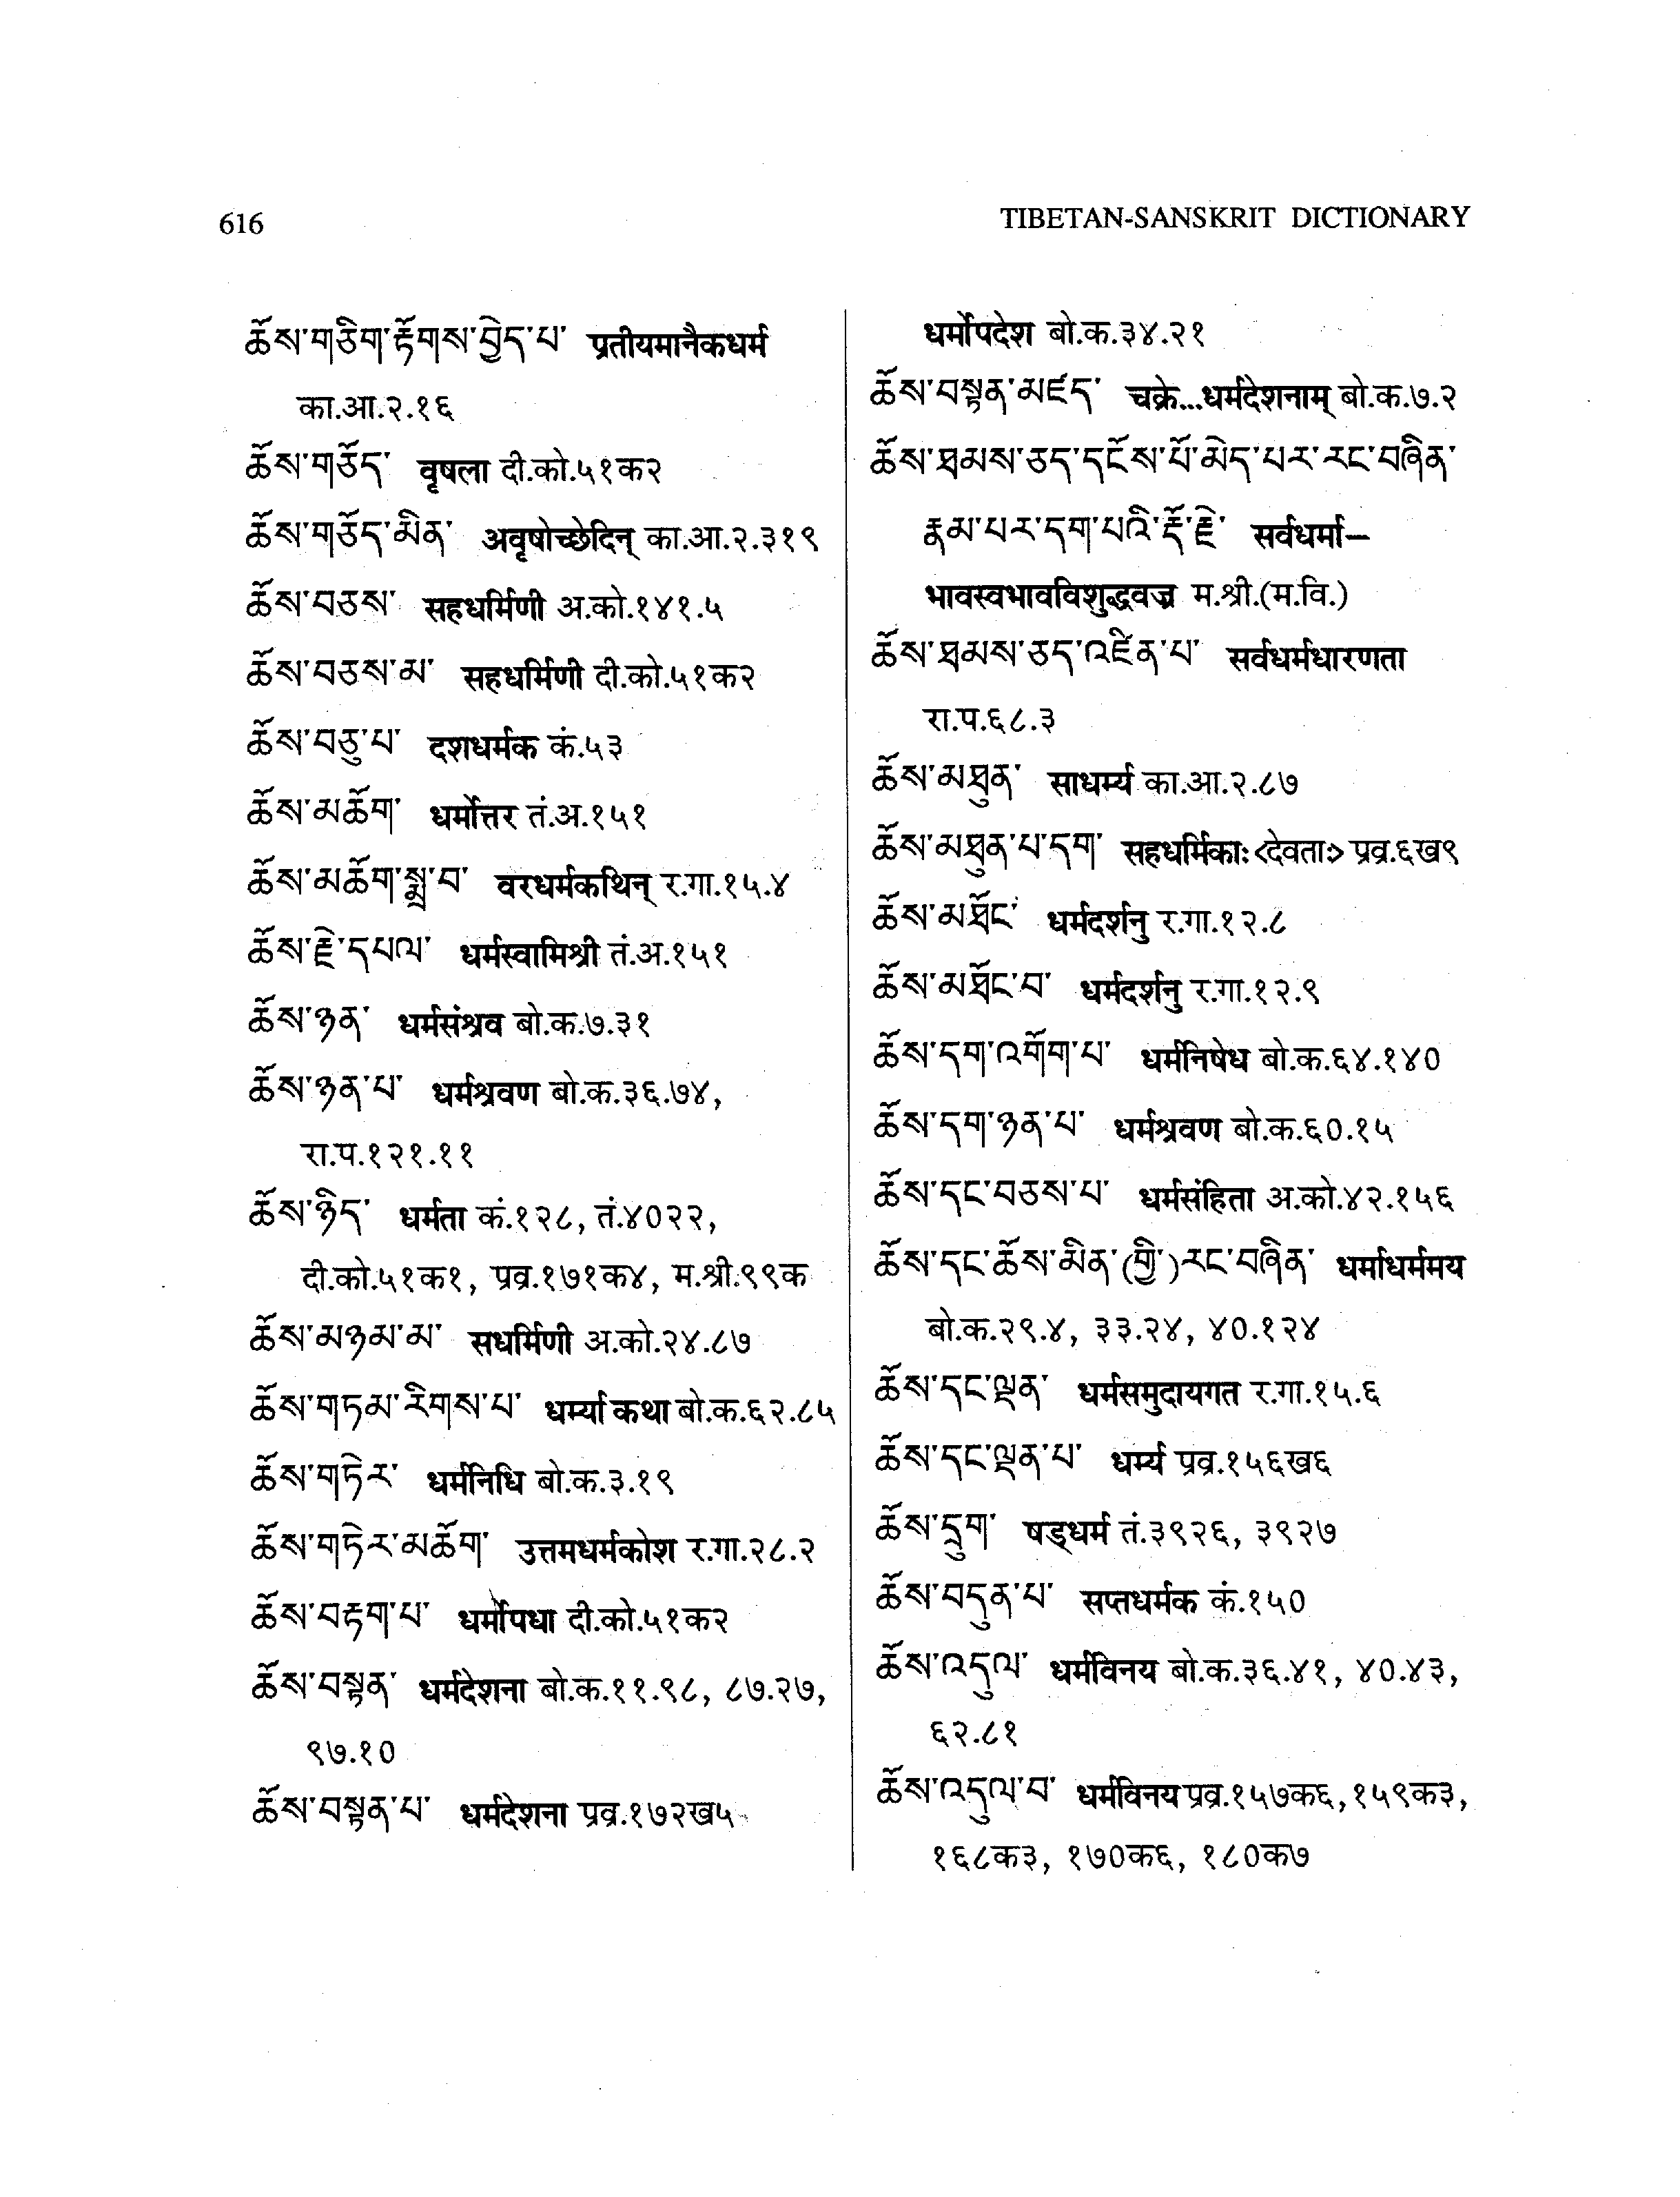 616
TIBETAN-SANSKRIT DICTIONARY
ཆོས་གཅིག་རྟོགས་བྱེད་པ་ प्रतीयमानैकधर्म
का.आ.२.१६
ཆོས་གཅོད་ वृषला दी.को.५१क२
ཆོས་གཅོད་མིན་ अवृषोच्छेदिन् का.आ.२.३१९
ཆོས་བཅས་ सहधर्मिणी अ.को.१४१.५
ཆོས་བཅས་མ་ सहधर्मिणी दी.को.५१क२
ཆོས་བཅུ་པ་ दशधर्मक कं.५३
ཆོས་མཆོག་ धर्मोत्तर तं.अ.१५१
ཆོས་མཆོག་སྨྲ་བ་ वरधर्मकथिन् र.गा.१५.४
ཆོས་རྗེ་དཔལ་ धर्मस्वामिश्री तं.अ.१५१
ཆོས་ཉན་ धर्मसंश्रव बो.क.७.३१
ཆོས་ཉན་པ་ धर्मश्रवण बो.क.३६.७४,
रा.प.१२१.११
ཆོས་ཉིད་ धर्मता कं.१२८, तं.४०२२,
दी.को.५१क१, प्रव्र.१७१क४, म.श्री.९९क
ཆོས་མཉམ་མ་ सधर्मिणी अ.को.२४.८७
ཆོས་གཏམ་རིགས་པ་ धर्म्या कथा बो.क.६२.८५
ཆོས་གཏེར་ धर्मनिधि बो.क.३.१९
ཆོས་གཏེར་མཆོག་ उत्तमधर्मकोश र.गा.२८.२
ཆོས་བརྟག་པ་ धर्मोपधा दी.को.५१क२
ཆོས་བསྟན་ धर्मदेशना बो.क.११.९८, ८७.२७,
९७.१०
ཆོས་བསྟན་པ་ धर्मदेशना प्रव्र.१७२ख५
धर्मोपदेश बो.क.३४.२१
ཆོས་བསྟན་མཛད་ चक्रे...धर्मदेशनाम् बो.क.७.२
ཆོས་ཐམས་ཅད་དངོས་པོ་མེད་པར་རང་བཞིན་
རྣམ་པར་དག་པའི་རྡོ་རྗེ་ सर्वधर्मा–
भावस्वभावविशुद्धवज्र म.श्री.(म.वि.)
ཆོས་ཐམས་ཅད་འཛིན་པ་ सर्वधर्मधारणता
रा.प.६८.३
ཆོས་མཐུན་ साधर्म्य का.आ.२.८७
ཆོས་མཐུན་པ་དག་ सहधर्मिकाः<देवताः> प्रव्र.६ख९
ཆོས་མཐོང་ धर्मदर्शनु र.गा.१२.८
ཆོས་མཐོང་བ་ धर्मदर्शनु र.गा.१२.९
ཆོས་དག་འགོག་པ་ धर्मनिषेध बो.क.६४.१४०
ཆོས་དག་ཉན་པ་ धर्मश्रवण बो.क.६०.१५
ཆོས་དང་བཅས་པ་ धर्मसंहिता अ.को.४२.१५६
ཆོས་དང་ཆོས་མིན་(གྱི་)རང་བཞིན་ धर्माधर्ममय
बो.क.२९.४, ३३.२४, ४०.१२४
ཆོས་དང་ལྡན་ धर्मसमुदायगत र.गा.१५.६
ཆོས་དང་ལྡན་པ་ धर्म्य प्रव्र.१५६ख६
ཆོས་དྲུག་ षड्धर्म तं.३९२६, ३९२७
ཆོས་བདུན་པ་ सप्तधर्मक कं.१५०
ཆོས་འདུལ་ धर्मविनय बो.क.३६.४१, ४०.४३,
६२.८१
ཆོས་འདུལ་བ་ धर्मविनय प्रव्र.१५७क६,१५९क३,
१६८क३, १७०क६, १८०क७